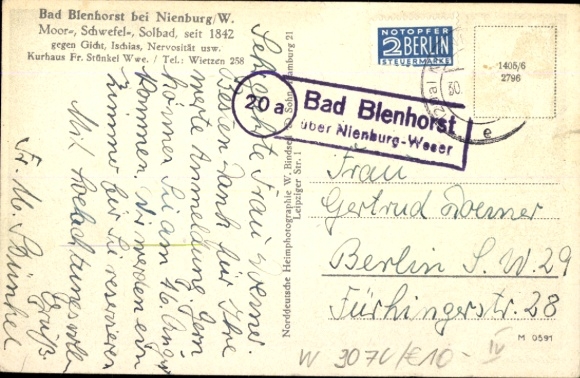 Bad Blenhorst bei Nienburg/W.
Moor-, Schwefel-, Solbad, seit 1842
gegen Gicht, Ischias, Nervosität usw.
Kurhaus Fr. Stünkel Wwe. / Tel.: Wietzen 258
Frau
Besten Dank für Ihre
werte Anmeldung. Gern
können Sie am 16. August
kommen. Wir werden ein
Zimmer für Sie reservieren
Mit
Gruß
Fr. M. Stünkel
Norddeutsche Heimphotographie W. Bindseil Sohn, Hamburg 21
Leipziger Str. 1
NOTOPFER
2 BERLIN
STEUERMARKE
1405/6
2796
20a
Bad Blenhorst
über Nienburg-Weser
30
e
Frau
Gertrud
Berlin S.W. 29
Fürhingerstr. 28
M 0591
W 3076/€10-
IV